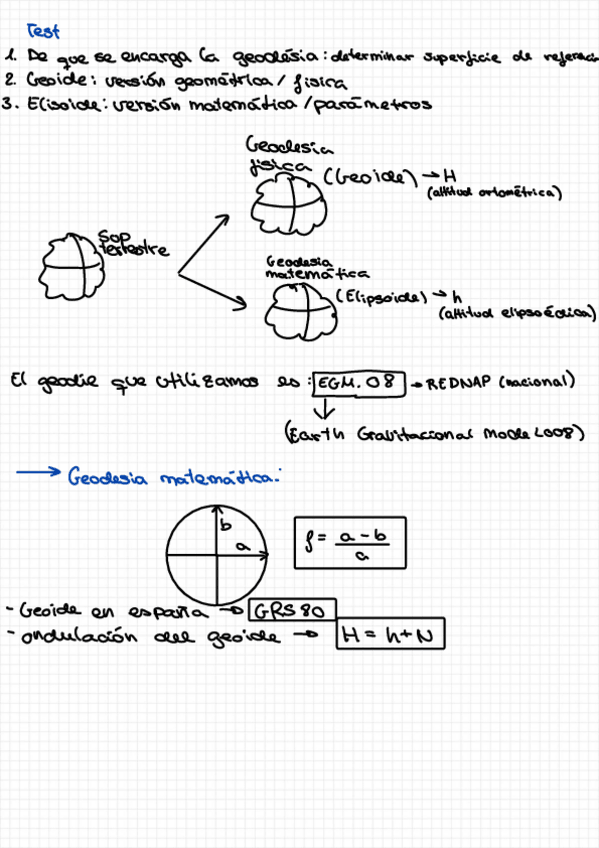 Test
1. De que se encarga la geodésia: determinar superficie de referenc
2. Geoide: versión geométrica / física
3. Elisoide: versión matemática / parámetros
Geodesia
física
(Geoide) → H
(altitud ortométrica)
Sop
terrestre
Geodesia
matemática
(Elipsoide) → h
(altitud elipsoédica)
El geodie que utilizamos es: EGM.08 → REDNAP (nacional)
(Earth Gravitacional Mode 2008)
→ Geodesia matemática:
b
a
f = a - b / a
- Geoide en españa → GRS80
- ondulación del geoide → H = h + N